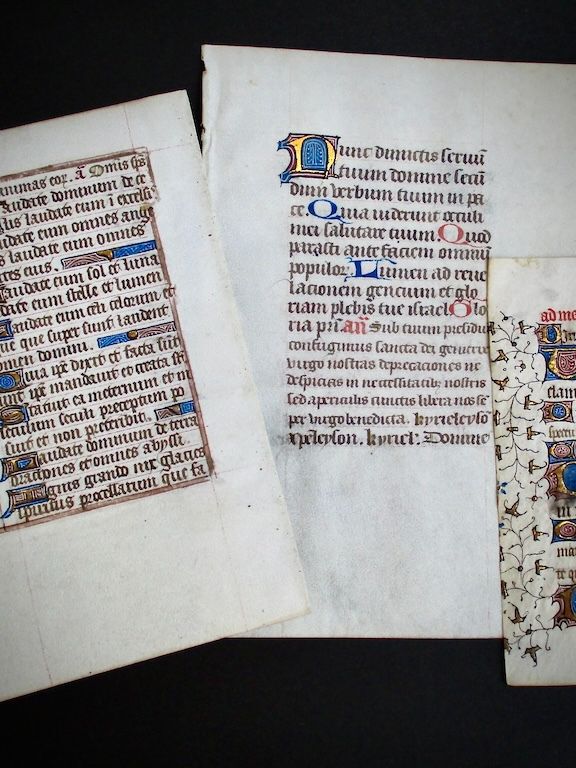 animas eor. añ Omis sp̃s
Laudate dominum de ce
lis laudate eum ĩ excelsis
Laudate eum omnes ange
laudate eum omnes
tes eius.
Laudate eum sol et luna
eum stelle et lumen
Laudate eum celi celorum et
que que super sunt
nomen domini.
quia ip̃e dixit et facta sũt
ip̃e mandauit et creata sũt
Statuit ea in eternum et in
seculum seculi preceptum po
suit et non preteribit.
Laudate dominum de terra
dracones et omnes abyssi.
Ignis grando nix glacies
spiritus procellarum que fa
Nunc dimictis seruũ
tuum domine secũ
dum verbum tuum in pa
ce. Quia uiderunt oculi
mei salutare tuum. Quod
parasti ante faciem omniũ
populor. Lumen ad reue
lacionem gencium et glo
riam plebis tue israel. Glo
ria pr̃i. añ Sub tuum presidiũ
confugimus sancta dei genetrix
uirgo nostras deprecaciones ne
despicias in necessitatib; nostris
sed a periculis cunctis libera nos sẽ
per uirgo benedicta. kyrieleyso
xp̃eleyson. kyriel'. Domine
ad ma